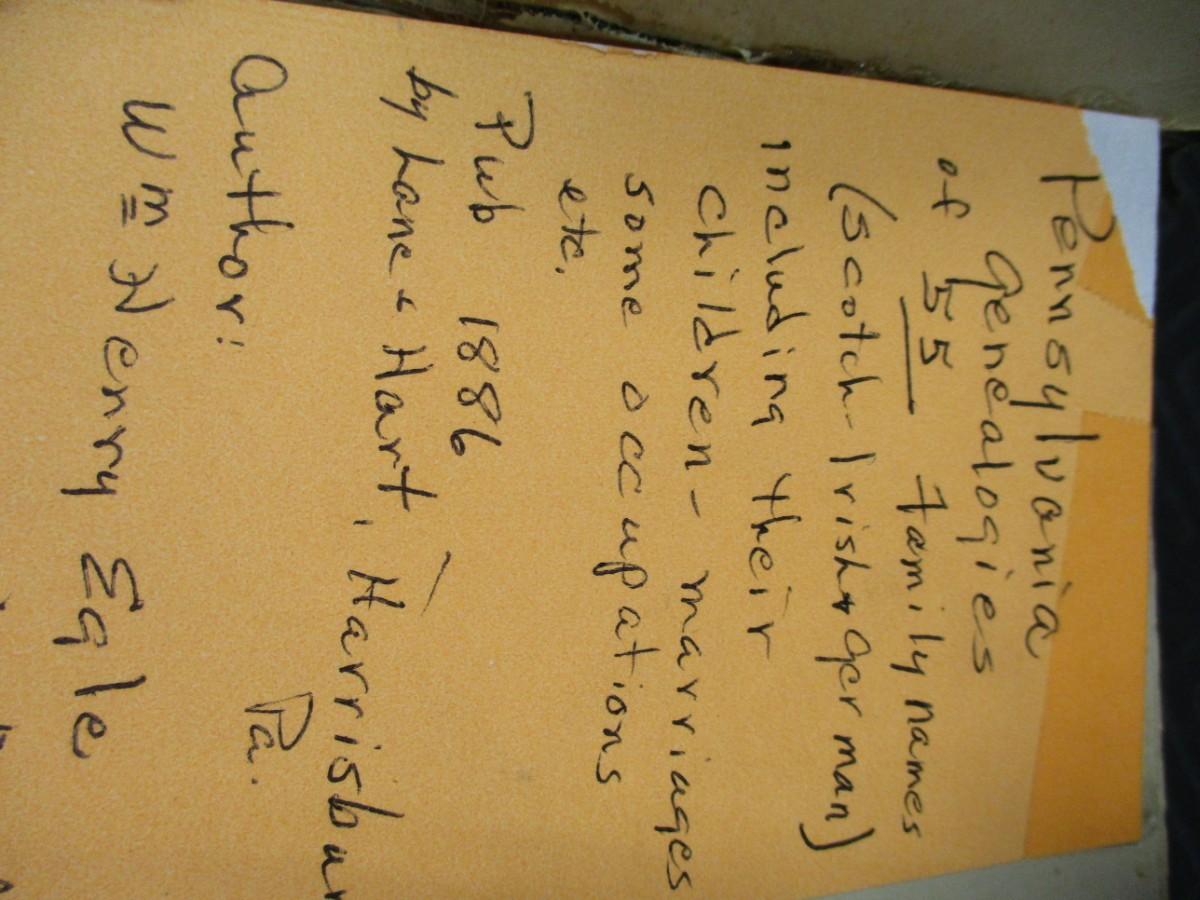 Pennsylvania
genealogies
of 55 family names
(Scotch-Irish & German)
including their
children - marriages
some occupations
etc.
Pub 1886
by Lane & Hart, Harrisbur
Pa.
Author:
Wm Henry Egle